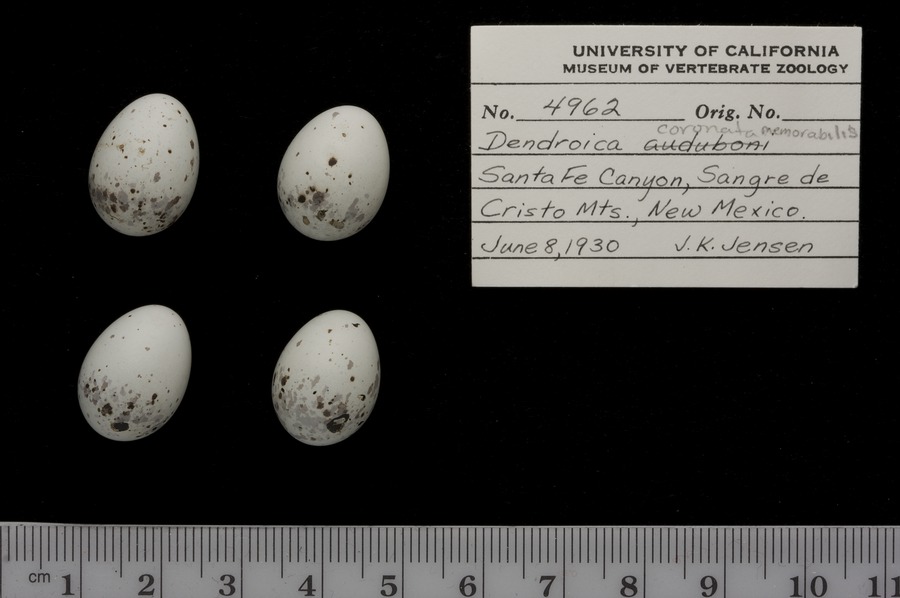 UNIVERSITY OF CALIFORNIA
MUSEUM OF VERTEBRATE ZOOLOGY
No. 4962 Orig. No.
coronata memorabilis
Dendroica auduboni
Santa Fe Canyon, Sangre de
Cristo Mts., New Mexico.
June 8, 1930 J.K. Jensen
cm 1 2 3 4 5 6 7 8 9 10 11